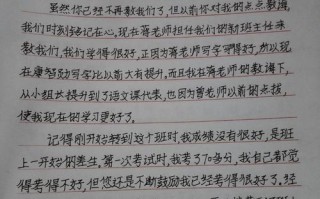 虽然你已经不再教我们了，但以前你对我的点点教诲，
我们时刻铭记在心，现在蒋老师担任我们的新班主任来
教我们，我们学得很好，正因为蒋老师写字写得好，所以现
在唐智励写字比以前大有提升。而我在蒋老师的教诲下，
从小组长提升到了语文课代表，也因为曾老师以前的点拨，
使我现在的学习更好了。
记得刚开始转到这个班时，我成绩没有很好，是班
上一开始的差生。第一次考试时，我考了70多分，我自己都觉
得考得不好，但您还是不断鼓励我已经考得很好了。经